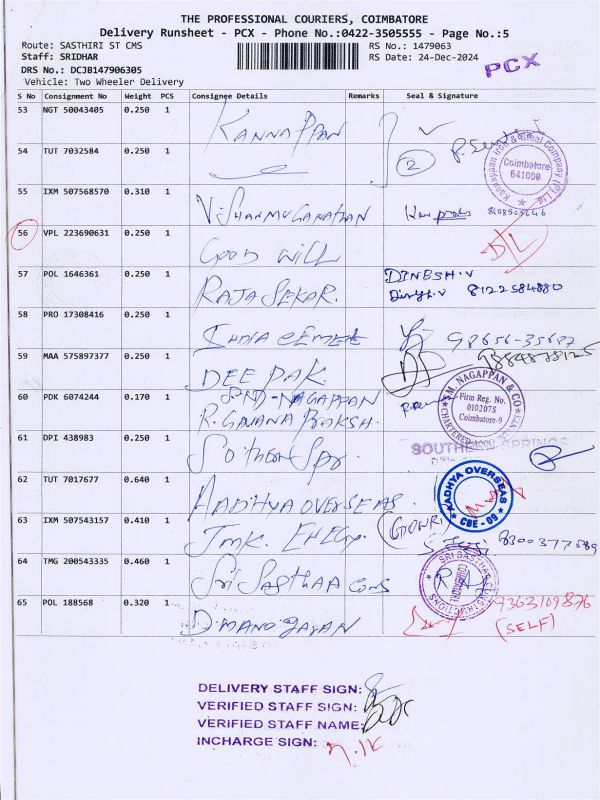 THE PROFESSIONAL COURIERS, COIMBATORE
Delivery Runsheet - PCX - Phone No.:0422-3505555 - Page No.:5
Route: SASTHIRI ST CMS
RS No.: 1479063
Staff: SRIDHAR
RS Date: 24-Dec-2024
PCX
DRS No.: DCJB147906305
Vehicle: Two Wheeler Delivery
S No Consignment No Weight PCS Consignee Details Remarks Seal & Signature
53 NGT 50043405 0.250 1 KANNAPPAN
54 TUT 7032584 0.250 1 2 Coimbatore 641009
55 IXM 507568570 0.310 1 V. SHANMUGANATHAN
56 VPL 223690631 0.250 1 GOOD WILL D/L
57 POL 1646361 0.250 1 RAJASEKAR. DINESH.V
8122584880
58 PRO 17308416 0.250 1 98656-35687
59 MAA 575897377 0.250 1 DEEPAK 9884878125
60 PDK 6074244 0.170 1 NAGAPPAN
R. GNANA PRAKSH. M. NAGAPPAN & CO Firm Reg. No. 010207S Coimbatore-9 CHARTERED
61 DPI 438983 0.250 1 SOUTHERN SPRINGS
62 TUT 7017677 0.640 1 AADHYA OVERSEAS. AADHYA OVERSEAS CBE - 09
63 IXM 507543157 0.410 1 JMK. (GOWRI) 8300377889
64 TMG 200543335 0.460 1 Sri Sasthaa Cons SRI SASTHAA CONSTRUCTIONS
65 POL 188568 0.320 1 D. MANOJ 7363109876
(SELF)
DELIVERY STAFF SIGN:
VERIFIED STAFF SIGN:
VERIFIED STAFF NAME:
INCHARGE SIGN: